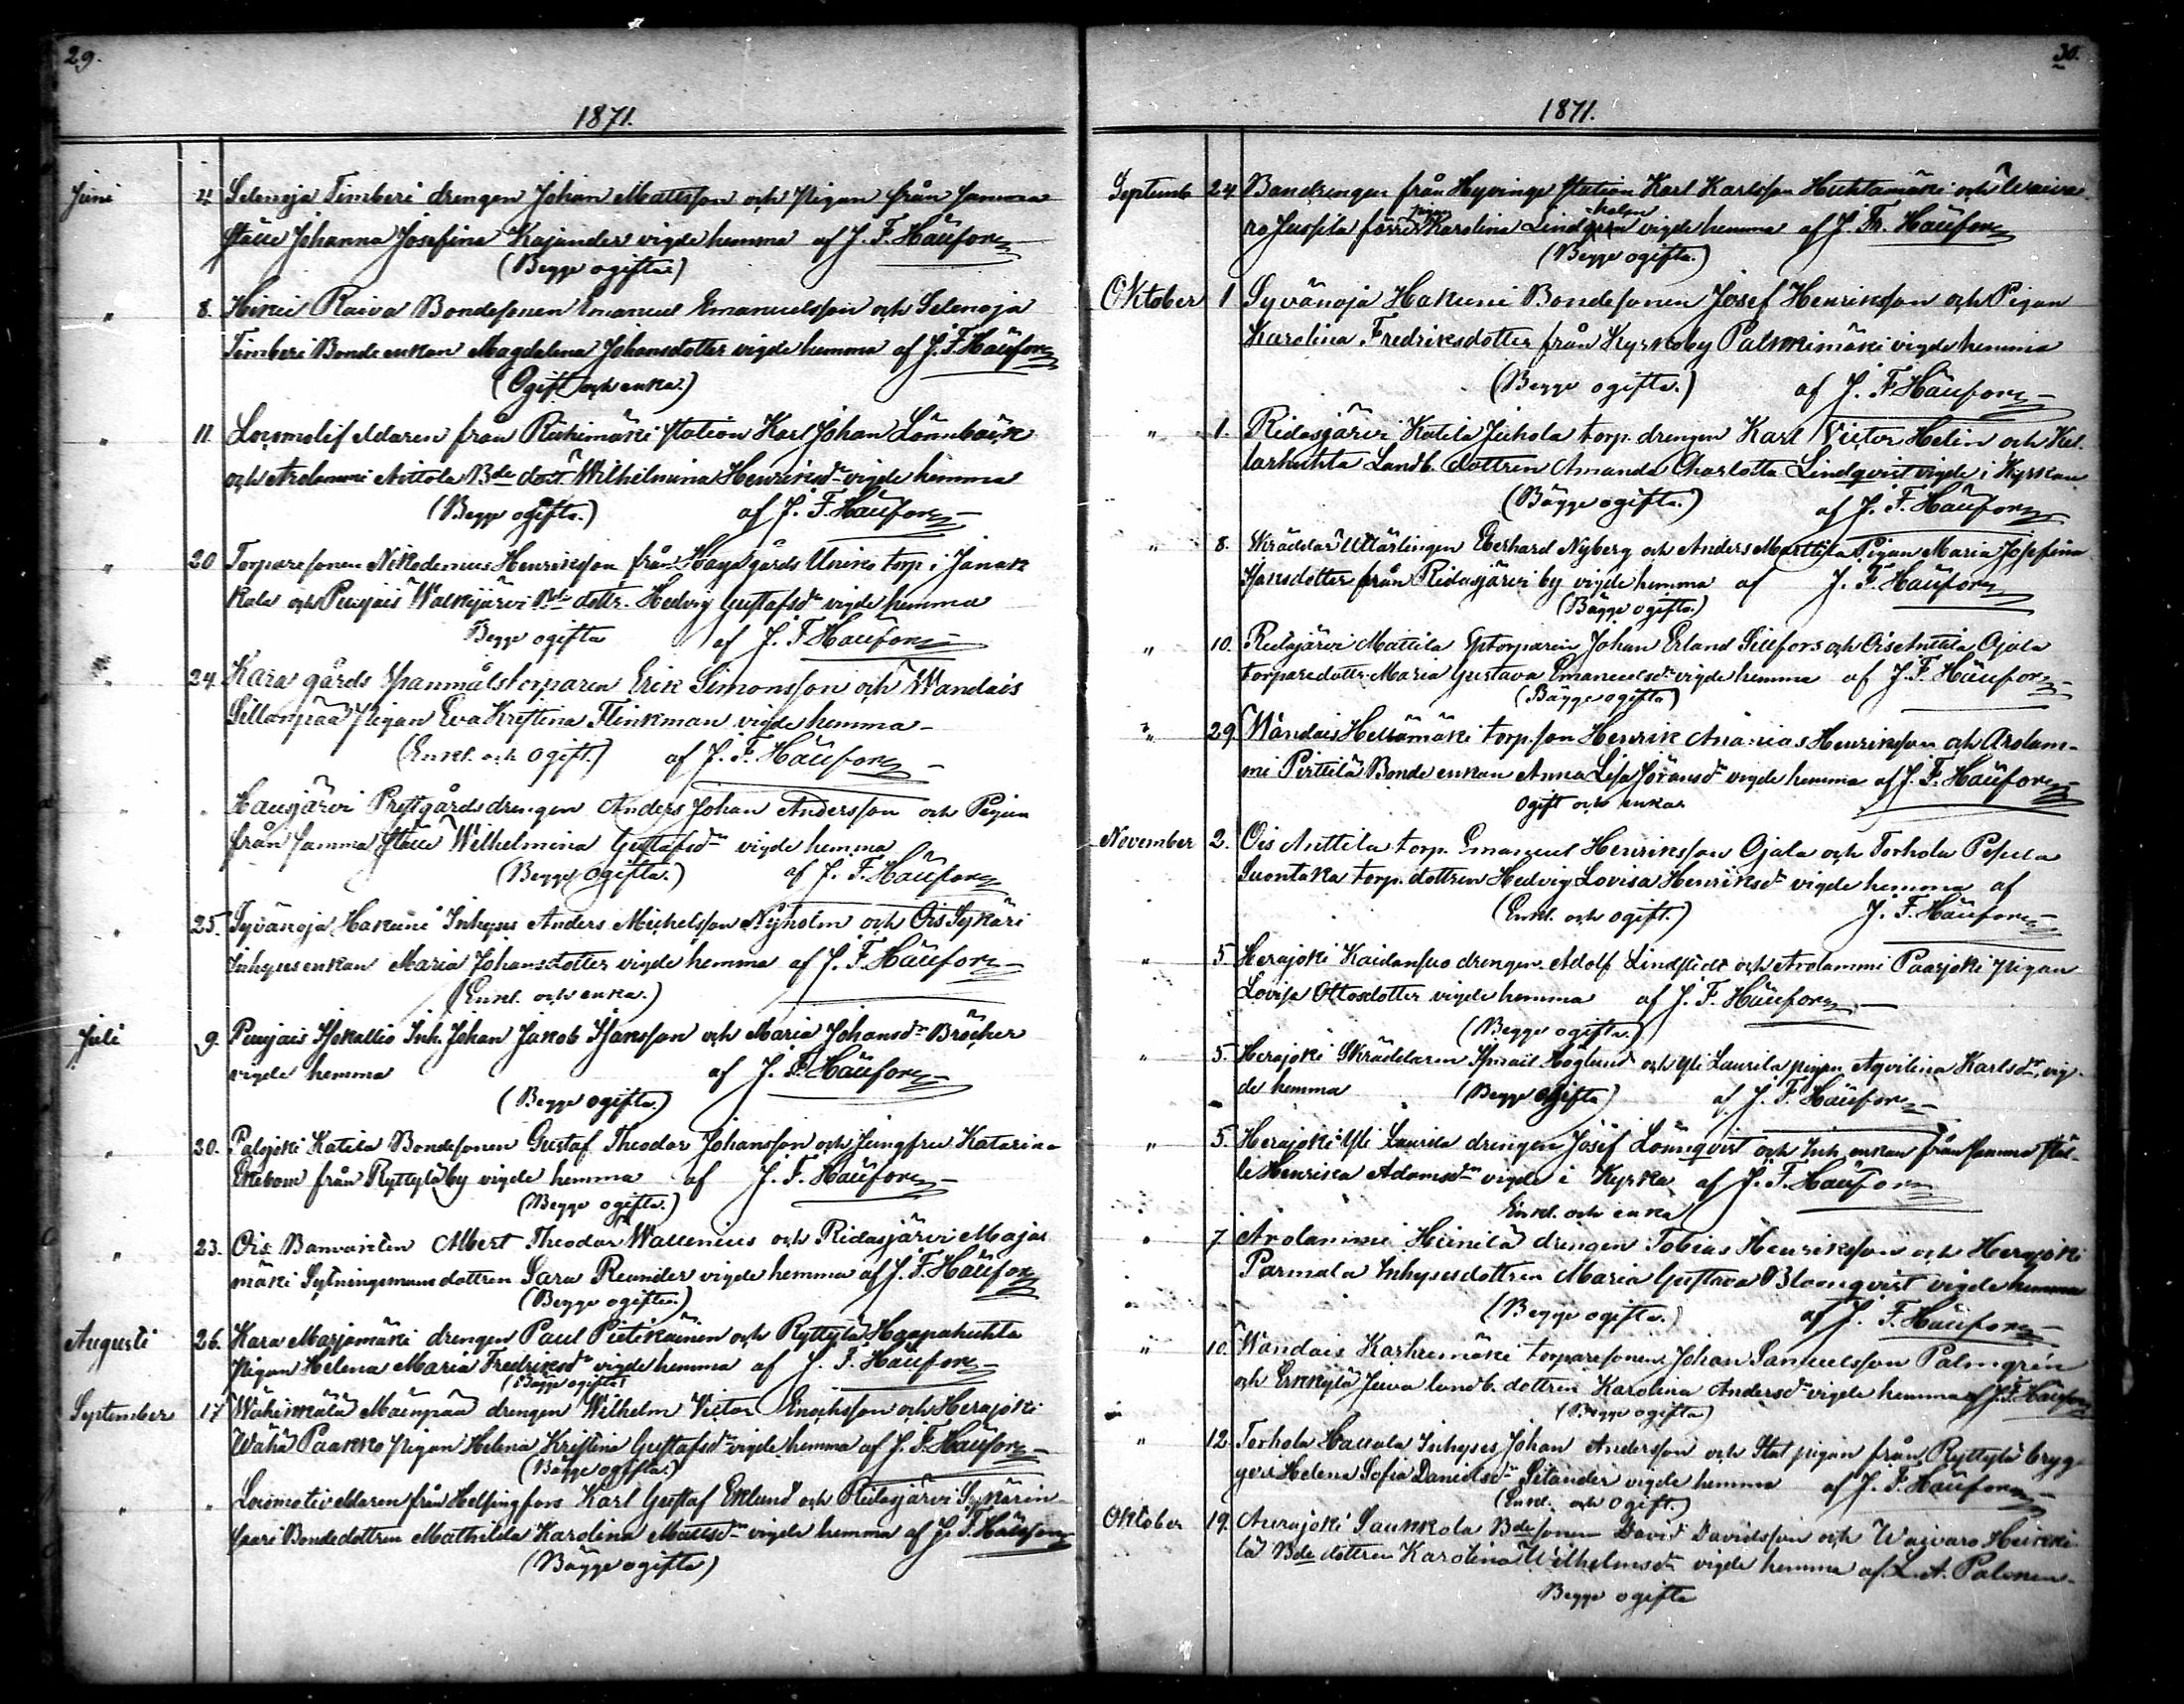 29.
1871.
Juni 4 Selenoja Timberi drengen Johan Mattsson och Pigan från samma
ställe Johanna Josefina Kajander vigde hemma af J. F. Häufors
(Begge ogifta.)
" 8. Hirvi Raiva Bondesonen Emanuel Emanuelsson och Selenoja
Timberi Bonde enkan Magdalena Johansdotter vigde hemma af J. F. Häufors
(Ogift och enka.)
" 11. Locomotif eldaren från Riihimäki station Karl Johan Lönnbäck
och Arolammi Wilhelmina Henriksdr vigde hemma
(Begge ogifta.) af J. F. Häufors
" 20 Torparesonen Nikodemus Henriksson från Haga gårds torp i Janak
kala och Puujais Walkjärvi Bde dottr. Hedvig Gustafsdr vigde hemma
Begge ogifta af J. F. Häufors
" 24. Kara gårds Spanmålstorparen Erik Simonsson och Wandais
Sillanpää Pigan Eva Kristina Flinkman vigde hemma
(Enkl. och ogift.) af J. F. Häufors
" Hausjärvi Prestgårds drengen Anders Johan Andersson och Pigan
från samma ställe Wilhelmina Gustafsdr vigde hemma
(Begge ogifta.) af J. F. Häufors
" 25. Syvänoja Hakuni Inhyses Anders Michelsson Nyholm och Ois Sykäri
Inhyses enkan Maria Johansdotter vigde hemma af J. F. Häufors
(Enkl. och enka.)
Juli 9. Puujais Isokallio Inh. Johan Jakob Isaksson och Maria Johansdr Bröcker
vigde hemma af J. F. Häufors
(Begge ogifta.)
" 20. Palojoki Katila Bondesonen Gustaf Theodor Johansson och Jungfru Katarina
Ekebom från Ryttylä by vigde hemma af J. F. Häufors
(Begge ogifta.)
" 23. Ois Banvakten Albert Theodor Wallenius och Ridasjärvi Majas
mäki Sytningsmans dottren Sara Renander vigde hemma af J. F. Häufors
(Begge ogifta.)
Augusti 26. Kara Marjamäki drengen Paul Pietikäinen och Ryttylä Haapahuhta
Pigan Helena Maria Fredriksdr vigde hemma af J. F. Häufors
(Bägge ogifta)
September 17 Wähikkälä Mäenpää drengen Wilhelm Victor Enochsson och Herajoki
Wähä Paakko Pigan Helena Kristina Gustafsdr vigde hemma af J. F. Häufors
(Bägge ogifta.)
" " Locomotiv eldaren från Helsingfors Karl Gustaf Eklund och Ridasjärvi Sykärin
saari Bondedottren Mathilda Karolina Mattsdr vigde hemma af J. F. Häufors
(Bägge ogifta)
30.
1871.
Septemb 24 Bandrengen från Hyvinge station Karl Karlsson Huhtamäki och Waiva
ro Jussila pigan Karolina Lindholm vigde hemma af J. Fr. Häufors
(Begge ogifta.)
Oktober 1 Syvänoja Hakuni Bondesonen Josef Henriksson och Pigan
Karolina Fredriksdotter från Kyrkoby Palkkimäki vigde hemma
(Begge ogifta.) af J. F. Häufors
" 1. Ridasjärvi Katila Juhola torp. drengen Karl Victor Helin och Kel
larhuhta Landb. dottren Amanda Charlotta Lindqvist vigde i Kyrkan
(Bägge ogifta.) af J. F. Häufors
" 8. Skräddar Utlärlingen Eberhard Nyberg och Anders Marttila Pigan Maria Josefina
Isaksdotter från Ridasjärvi by vigde hemma af J. F. Häufors
(Bägge ogifta.)
" 10. Ridasjärvi Mattila Johan Erland Sillfors och Ois Anttila Ojala
torparedottr. Maria Gustava Emanuelsdr vigde hemma af J. F. Häufors
(Bägge ogifta)
" 29. Wandais Hellämäki torp. son Henrik Ananias Henriksson och Arolam-
mi Pirttilä Bonde enkan Anna Lisa Göransdr vigde hemma af J. F. Häufors
Ogift och enka
November 2. Ois Anttila torp. Emanuel Henriksson Ojala och Torhola Pesula
Suontaka torp. dottren Hedvig Lovisa Henriksdr vigde hemma af
(Enkl. och ogift.) J. F. Häufors
" 5. Herajoki Kaidansuo drengen Adolf Lindstedt och Arolammi Paarjoki Pigan
Lovisa Ottosdotter vigde hemma af J. F. Häufors
(Begge ogifta.)
" 5. Herajoki Skräddaren Ismail Höglund och Yli Laurila pigan Aqvilina Karlsdr, vig-
de hemma (Begge ogifta) af J. F. Häufors
" 5. Herajoki Yli Laurila drengen Josef Lönnqvist och Inh. enkan från samma stäl-
le Henrica Adamsdr vigde i Kyrka af J. F. Häufors
Enkl. och enka
" 7 Arolammi Heinilä drengen Tobias Henriksson och Herajoki
Parmala Inhysesdottren Maria Gustava Blomqvist vigde hemma
(Begge ogifta.) af J. F. Häufors
" 10. Wandais Karhumäki torparesonen Johan Samuelsson Palmgrén
och Erkkylä Juva landb. dottren Karolina Andersdr vigde hemma af J. F. Häufors
(Begge ogifta)
" 12 Torhola Hallala Inhyses Johan Andersson och Stat pigan från Ryttylä bryg
geri Helena Sofia Danielsdr Silander vigde hemma af J. F. Häufors
(Enkl. och ogift.)
Oktober 19. Aurajoki Saukkola Bdesonen David Davidsson och Waivaro Heikki
lä Bde dottren Karolina Wilhelmsdr vigde hemma af L. A. Palonen.
Begge ogifta